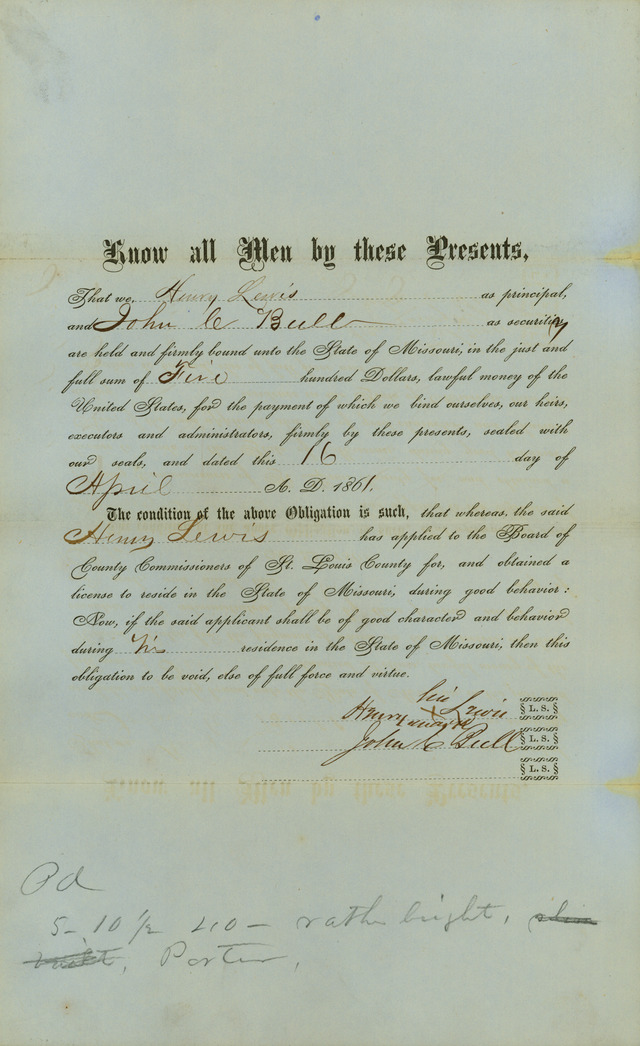 Know all Men by these Presents,
That we, Henry Lewis as principal,
and John C Bull as security
are held and firmly bound unto the State of Missouri, in the just and
full sum of Five hundred Dollars, lawful money of the
United States, for the payment of which we bind ourselves, our heirs,
executors and administrators, firmly by these presents, sealed with
our seals, and dated this 16 day of
April A. D. 1861.
The condition of the above Obligation is such, that whereas, the said
Henry Lewis has applied to the Board of
County Commissioners of St. Louis County for, and obtained a
license to reside in the State of Missouri, during good behavior:
Now, if the said applicant shall be of good character and behavior
during his residence in the State of Missouri, then this
obligation to be void, else of full force and virtue.
his
Henry X Lewis L. S.
mark
John C Bull L. S.
L. S.
Pd
5-10 1/2 40- rather bright,
Porter,